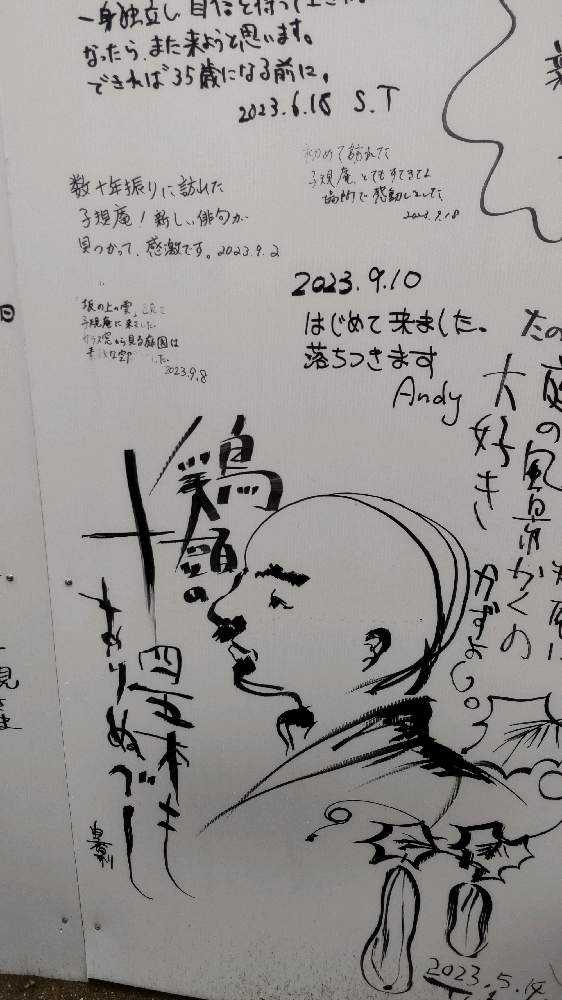 一身独立し自信を持って
なったら、また来ようと思います。
できれば35歳になる前に。
2023.6.18 S.T
初めて訪れた
子規庵、とてもすてきな
場所で感動しました
数十年振りに訪れた
子規庵！新しい俳句が
見つかって、感激です。2023.9.2
「坂の上の雲」
子規庵に来ました
ガラス窓から見る庭園は
2023.9.8
2023.9.10
はじめて来ました。
落ちつきます
Andy
の風景
大好き
鶏頭の
十四五本も
ありぬべし
2023.5.14